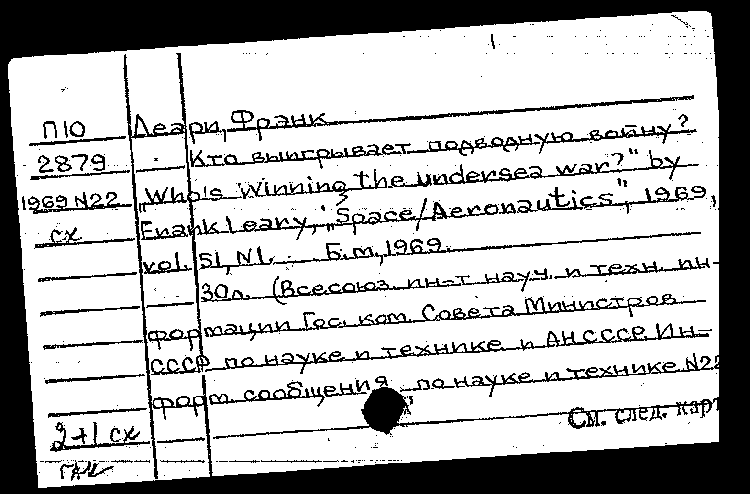 ПЮ Леари, Франк
2879 Кто выигрывает подводную войну?
1969 N22 „Who's Winning the undersea war?" by
сх Frank Leary, „Space/Aeronautics", 1969,
vol. 51, N1. Б.м., 1969.
30л. (Всесоюз. ин-т науч. и техн. ин-
формации Гос. ком. Совета Министров
СССР по науке и технике и АН СССР. Ин-
форм. сообщения по науке и технике N22
См. след. карт
2+1 сх